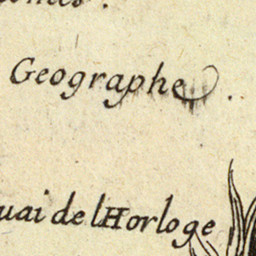 Geographe.
uai de lHorloge